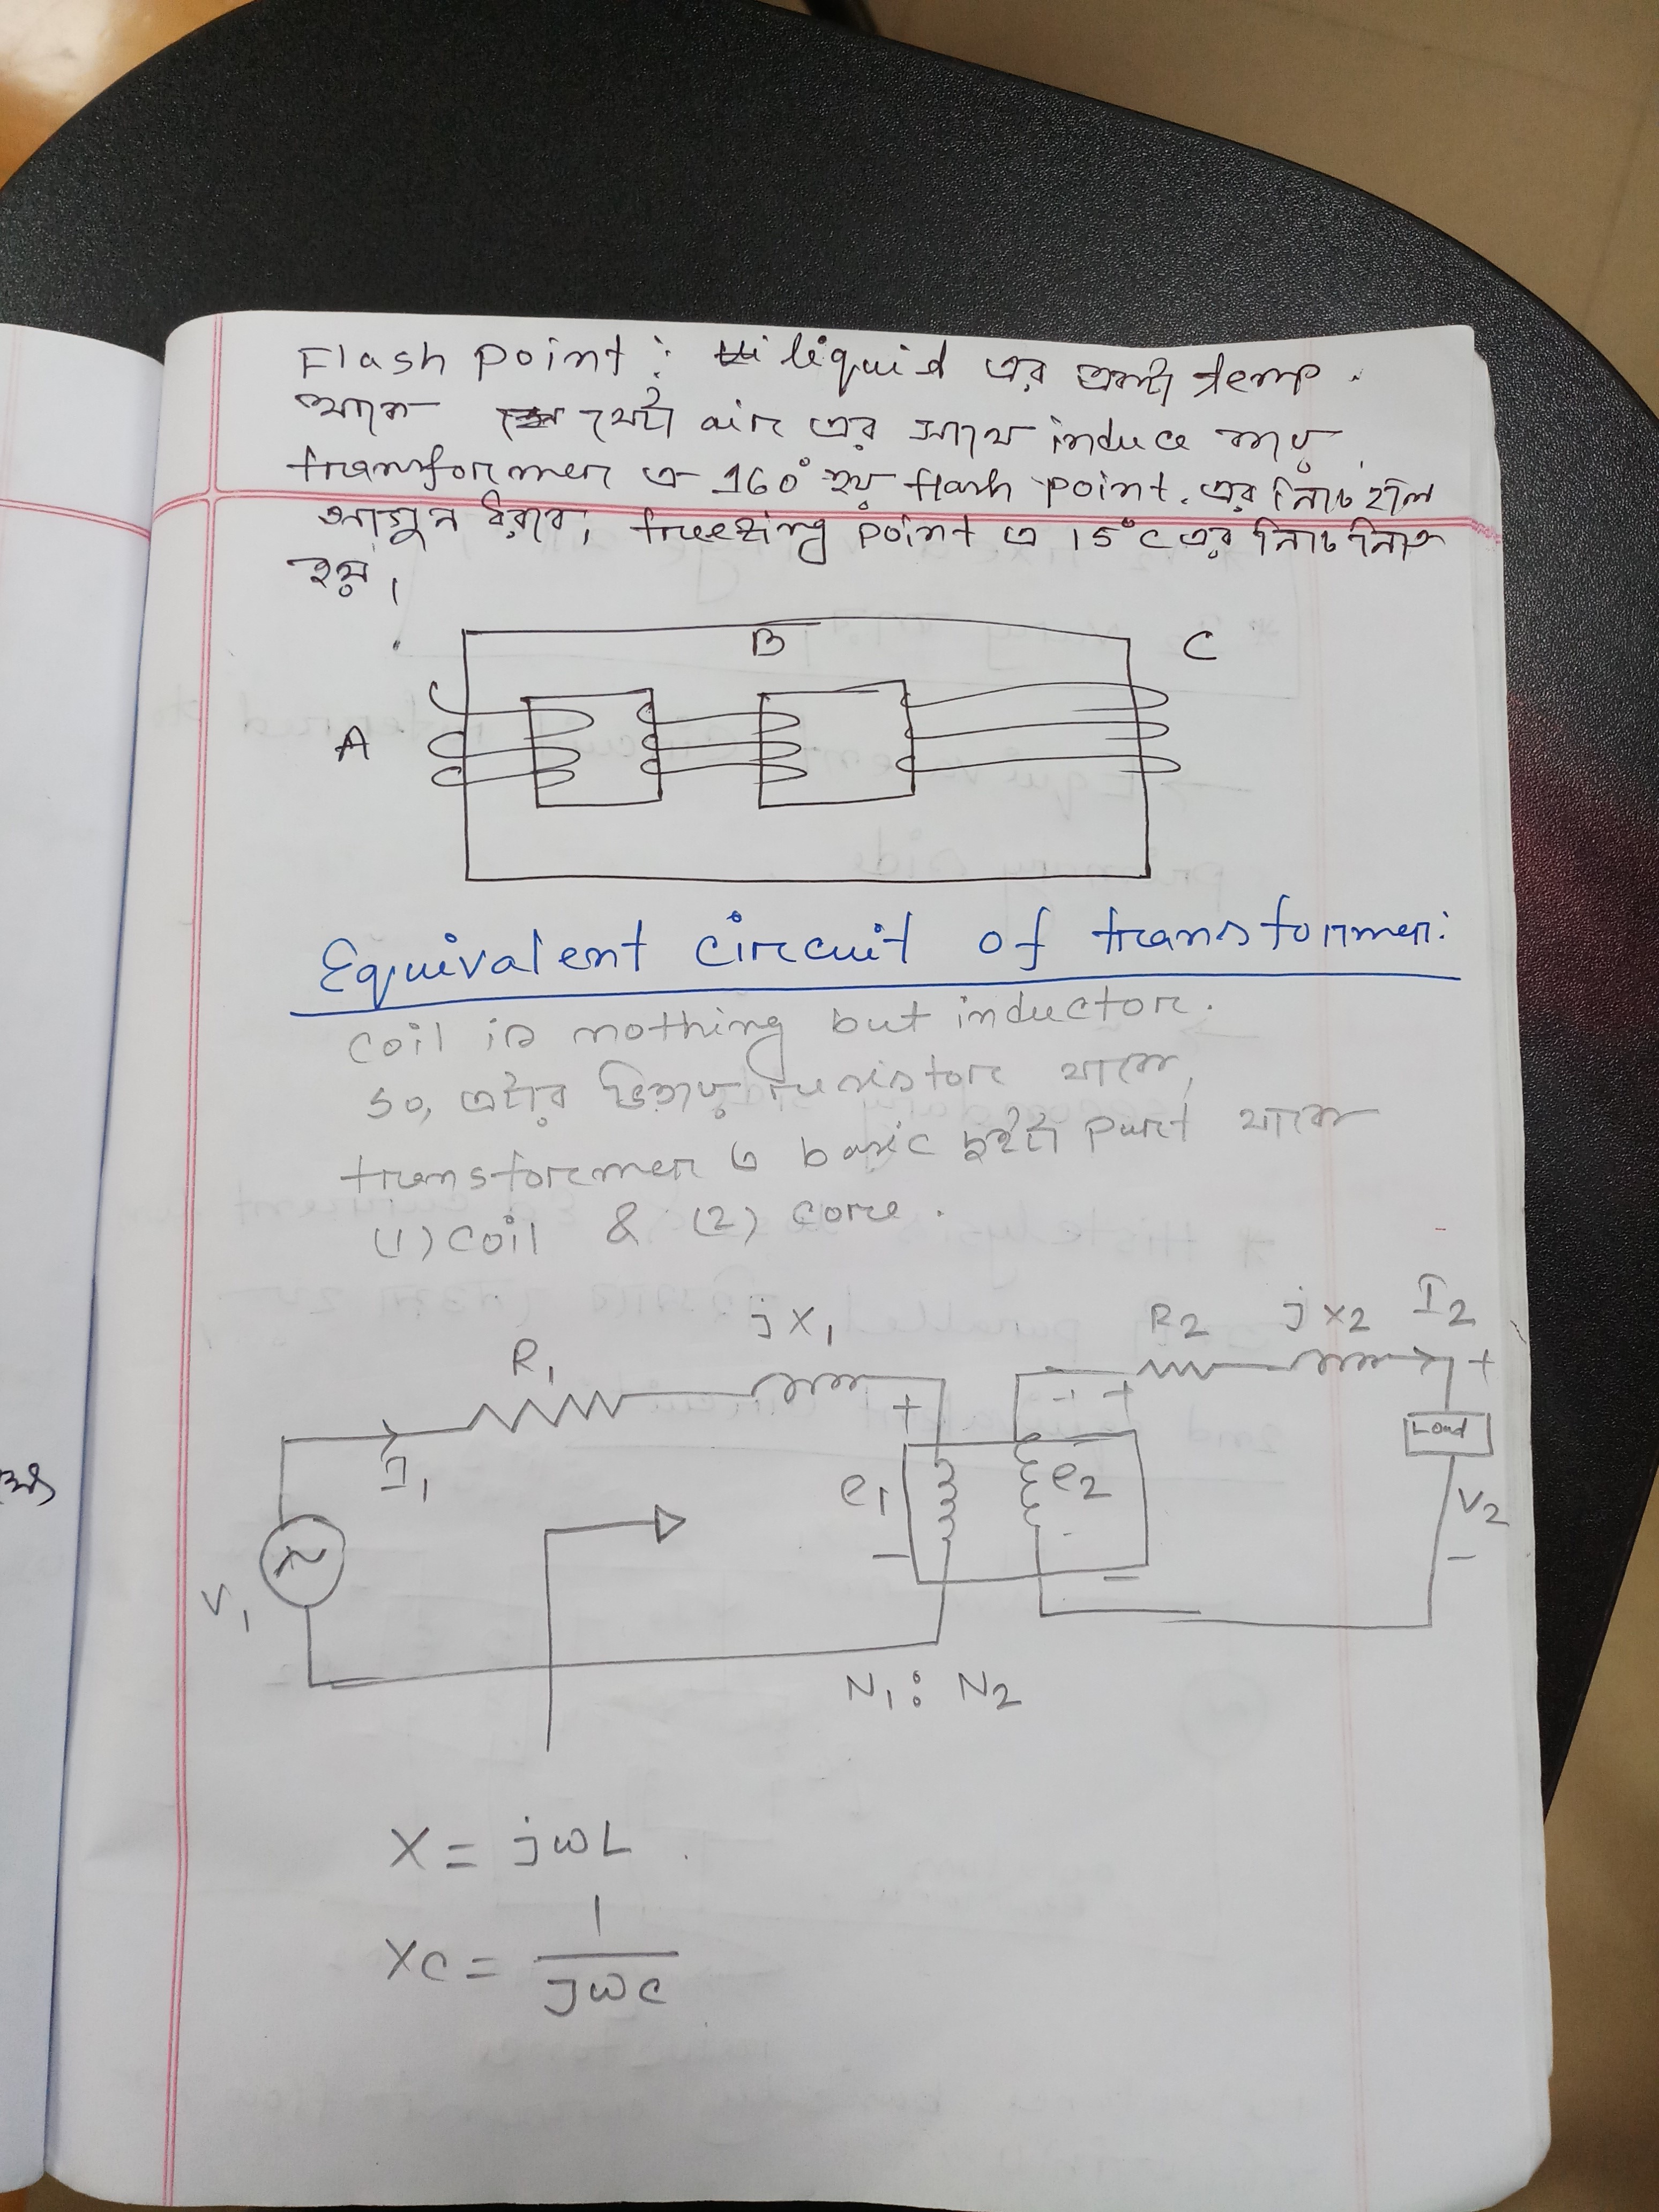 Flash point : liquid এর একটা temp.
থাকে যেটা air এর সাথে induce হয়
transformer এ 160° হয় flash point. এর নিচে হলে
আগুন ধরবে, freezing point এ 15°C এর নিচে নিতে
হয়।
A B C
Equivalent circuit of transformer:
coil is nothing but inductor.
so, এটার ভিতরে resistore থাকে,
transformer এ basic দুইটা part থাকে
(1) coil & (2) core.
R1 jX1 R2 jX2 I2
+ + +
I1 e1 e2 Load
V1 - - V2 -
N1 : N2
X = jωL
XC = 1/jωC